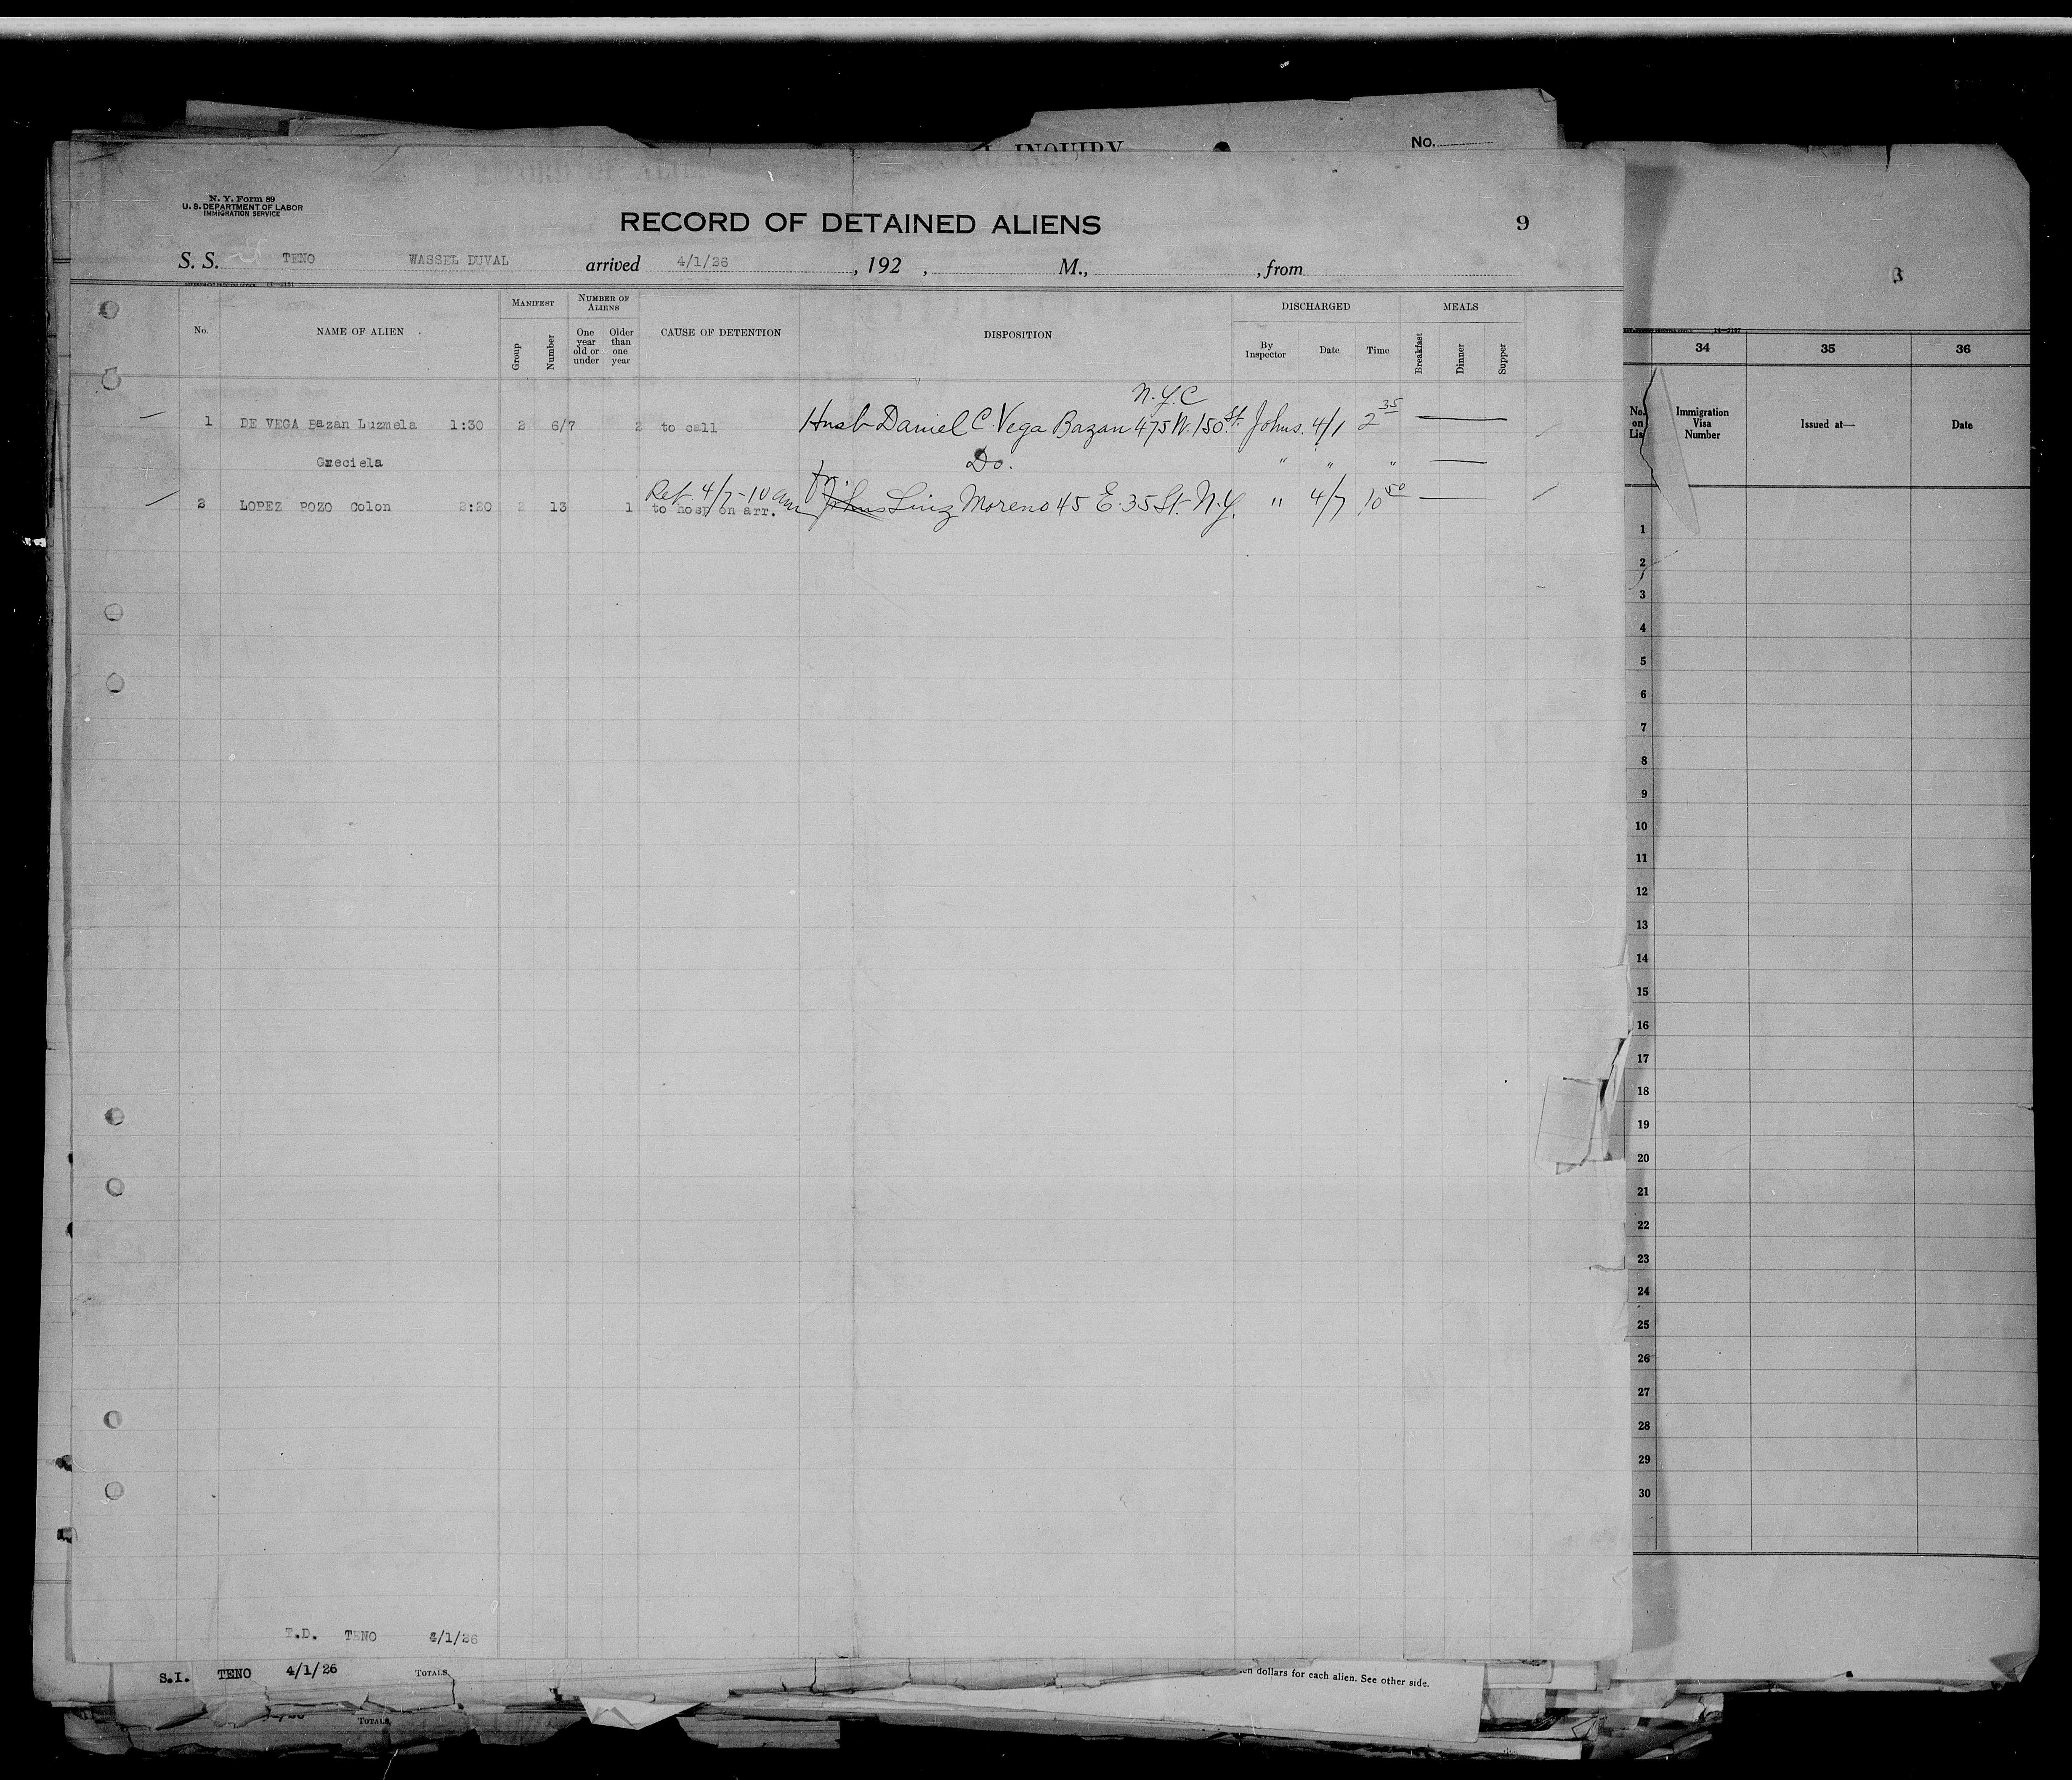 INQUIRY
No.
N. Y. Form 89
U. S. DEPARTMENT OF LABOR
IMMIGRATION SERVICE
RECORD OF DETAINED ALIENS
9
S. S. TENO WASSEL DUVAL arrived 4/1/26 , 192 , M., , from
No.
NAME OF ALIEN
MANIFEST
Group
Number
NUMBER OF ALIENS
One year old or under
Older than one year
CAUSE OF DETENTION
DISPOSITION
DISCHARGED
By Inspector
Date
Time
MEALS
Breakfast
Dinner
Supper
N.Y.C
1 DE VEGA Bazan Luzmela 1:30 2 6/7 2 to call Husb Daniel C. Vega Bazan 475 W. 150 St. Johns. 4/1 2 35
Greciela Do. " " "
Ret. 4/7-10 am
2 LOPEZ POZO Colon 2:20 2 13 1 to hosp on arr. fr. Johns Luiz Moreno 45 E. 35 St. N.Y. " 4/7 10 50
T.D. TENO 4/1/26
S.I. TENO 4/1/26 TOTALS
dollars for each alien. See other side.
TOTALS
34 35 36
No. on List
Immigration Visa Number
Issued at—
Date
1
2
3
4
5
6
7
8
9
10
11
12
13
14
15
16
17
18
19
20
21
22
23
24
25
26
27
28
29
30